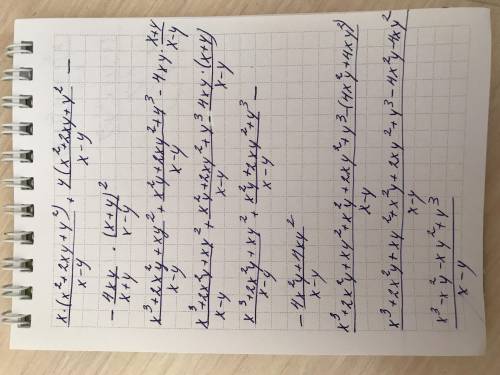 x·(x²+2xy+y²)/(x-y) + y(x²+2xy+y²)/(x-y) -
- 4xy/(x+y) · (x+y)²/(x-y)
(x³+2x²y+xy²)/(x-y) + (x²y+2xy²+y³)/(x-y) - 4xy · (x+y)/(x-y)
(x³+2x²y+xy²)/(x-y) + (x²y+2xy²+y³)/(x-y) - 4xy·(x+y)/(x-y)
(x³+2x²y+xy²)/(x-y) + (x²y+2xy²+y³)/(x-y) -
- (4x²y+4xy²)/(x-y)
(x³+2x²y+xy²+x²y+2xy²+y³-(4x²y+4xy²))/(x-y)
(x³+2x²y+xy²+x²y+2xy²+y³-4x²y-4xy²)/(x-y)
(x³-x²y-xy²+y³)/(x-y)